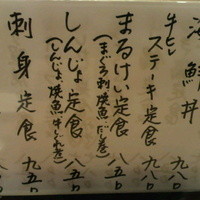 海鮮丼
牛ヒレステーキ定食 九八〇
まるけい定食 八五〇
(まぐろ刺、焼魚、だし巻)
しんじょ定食 八五〇
(しんじょ、焼魚、牛しぐれ煮)
刺身定食 九五〇